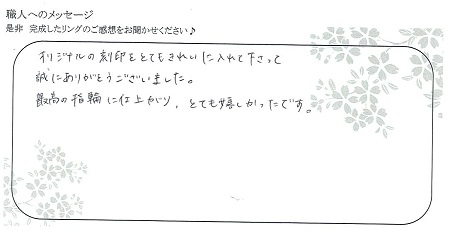 職人へのメッセージ
是非 完成したリングのご感想をお聞かせください♪
オリジナルの刻印をとてもきれいに入れて下さって
誠にありがとうございました。
最高の指輪に仕上がり、とても嬉しかったです。